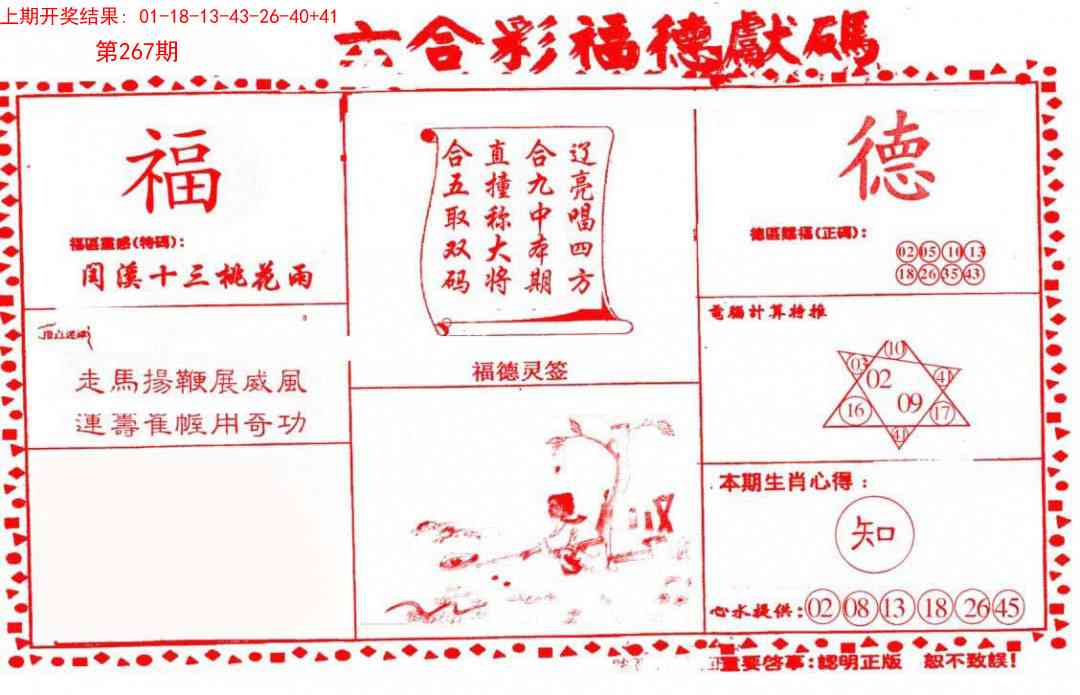 上期开奖结果: 01-18-13-43-26-40+41
第267期
六合彩福德獻碼
福
福區靈感(特碼):
閏溪十三桃花雨
走馬揚鞭展威風
連籌崔幄用奇功
辽亮唱四方
合九中本期
直撞称大将
合五取双码
福德灵签
德
德區賜福(正碼):
02 05 10 13
18 26 35 43
電腦計算特推
10
03
41
02
09
16
17
41
本期生肖心得:
知
心水提供: 02 08 13 18 26 45
重要啓事:認明正版 恕不致誤!